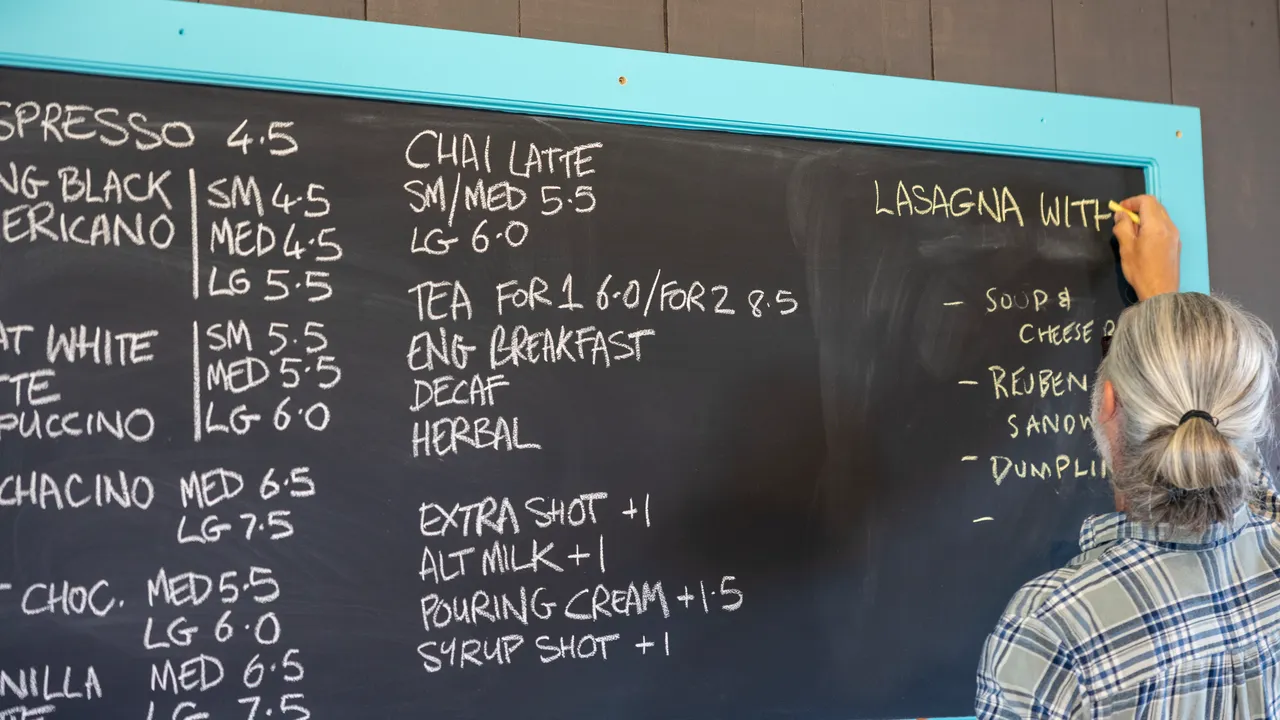 SPRESSO 4.5
NG BLACK
ERICANO
SM 4.5
MED 4.5
LG 5.5
AT WHITE
TTE
PUCCINO
SM 5.5
MED 5.5
LG 6.0
CHACINO MED 6.5
LG 7.5
T CHOC. MED 5.5
LG 6.0
NILLA MED 6.5
LG 7.5
CHAI LATTE
SM/MED 5.5
LG 6.0
TEA FOR 1 6.0/FOR 2 8.5
ENG BREAKFAST
DECAF
HERBAL
EXTRA SHOT +1
ALT MILK +1
POURING CREAM +1.5
SYRUP SHOT +1
LASAGNA WITH
- SOUP &
CHEESE
- REUBEN
SANDW
- DUMPLIN
-